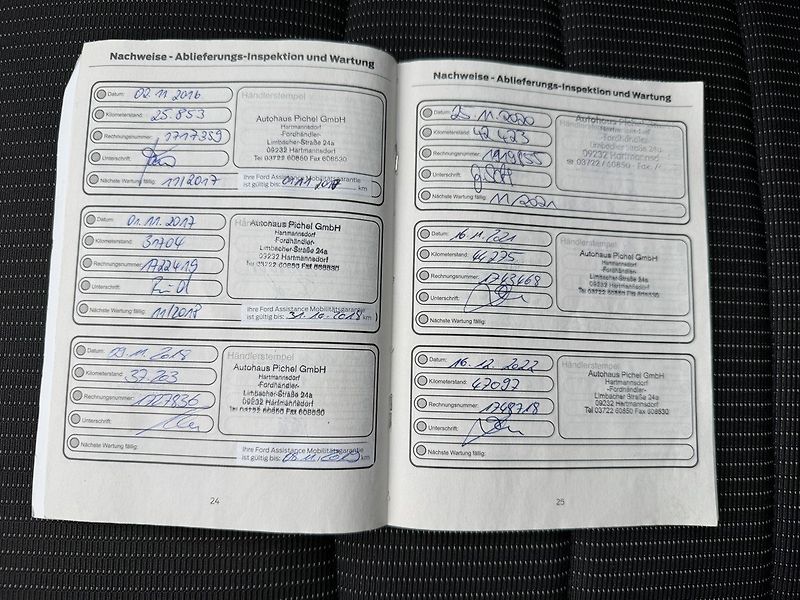 Nachweise - Ablieferungs-Inspektion und Wartung
Datum: 02.11.2016
Kilometerstand: 25.853
Rechnungsnummer: 1717359
Unterschrift:
Nächste Wartung fällig: 11/2017
Händlerstempel
Autohaus Pichel GmbH
Hartmannsdorf
-Fordhändler-
Limbacher-Straße 24a
09232 Hartmannsdorf
Tel 03722 60850 Fax 608530
Ihre Ford Assistance Mobilitätsgarantie
ist gültig bis: km
Datum: 01.11.2017
Kilometerstand: 31704
Rechnungsnummer: 1722419
Unterschrift:
Nächste Wartung fällig: 11/2018
Autohaus Pichel GmbH
Hartmannsdorf
-Fordhändler-
Limbacher-Straße 24a
09232 Hartmannsdorf
Tel 03722 60850 Fax 608530
Ihre Ford Assistance Mobilitätsgarantie
ist gültig bis: 31.10.2018 km
Datum: 11.2018
Kilometerstand: 37203
Rechnungsnummer: 1727856
Unterschrift:
Nächste Wartung fällig:
Händlerstempel
Autohaus Pichel GmbH
Hartmannsdorf
-Fordhändler-
Limbacher-Straße 24a
09232 Hartmannsdorf
Tel 03722 60850 Fax 608530
Ihre Ford Assistance Mobilitätsgarantie
ist gültig bis: km
24
Nachweise - Ablieferungs-Inspektion und Wartung
Datum: 25.11.2020
Kilometerstand: 42423
Rechnungsnummer: 1919855
Unterschrift:
Nächste Wartung fällig: 11/2021
Autohaus Pichel GmbH
-Fordhändler-
Limbacher Straße 24a
09232 Hartmannsd
☎ 03722 / 60850 - Fax
Datum: 16.11.2021
Kilometerstand: 44775
Rechnungsnummer: 1743468
Unterschrift:
Nächste Wartung fällig:
Händlerstempel
Autohaus Pichel GmbH
Hartmannsdorf
-Fordhändler-
Limbacher-Straße 24a
09232 Hartmannsdorf
Tel 03722 60850 Fax 608530
Datum: 16.12.2022
Kilometerstand: 47097
Rechnungsnummer: 1748718
Unterschrift:
Nächste Wartung fällig:
Händlerstempel
Autohaus Pichel GmbH
Hartmannsdorf
-Fordhändler-
Limbacher Straße 24a
09232 Hartmannsdorf
Tel 03722 60850 Fax 608530
25